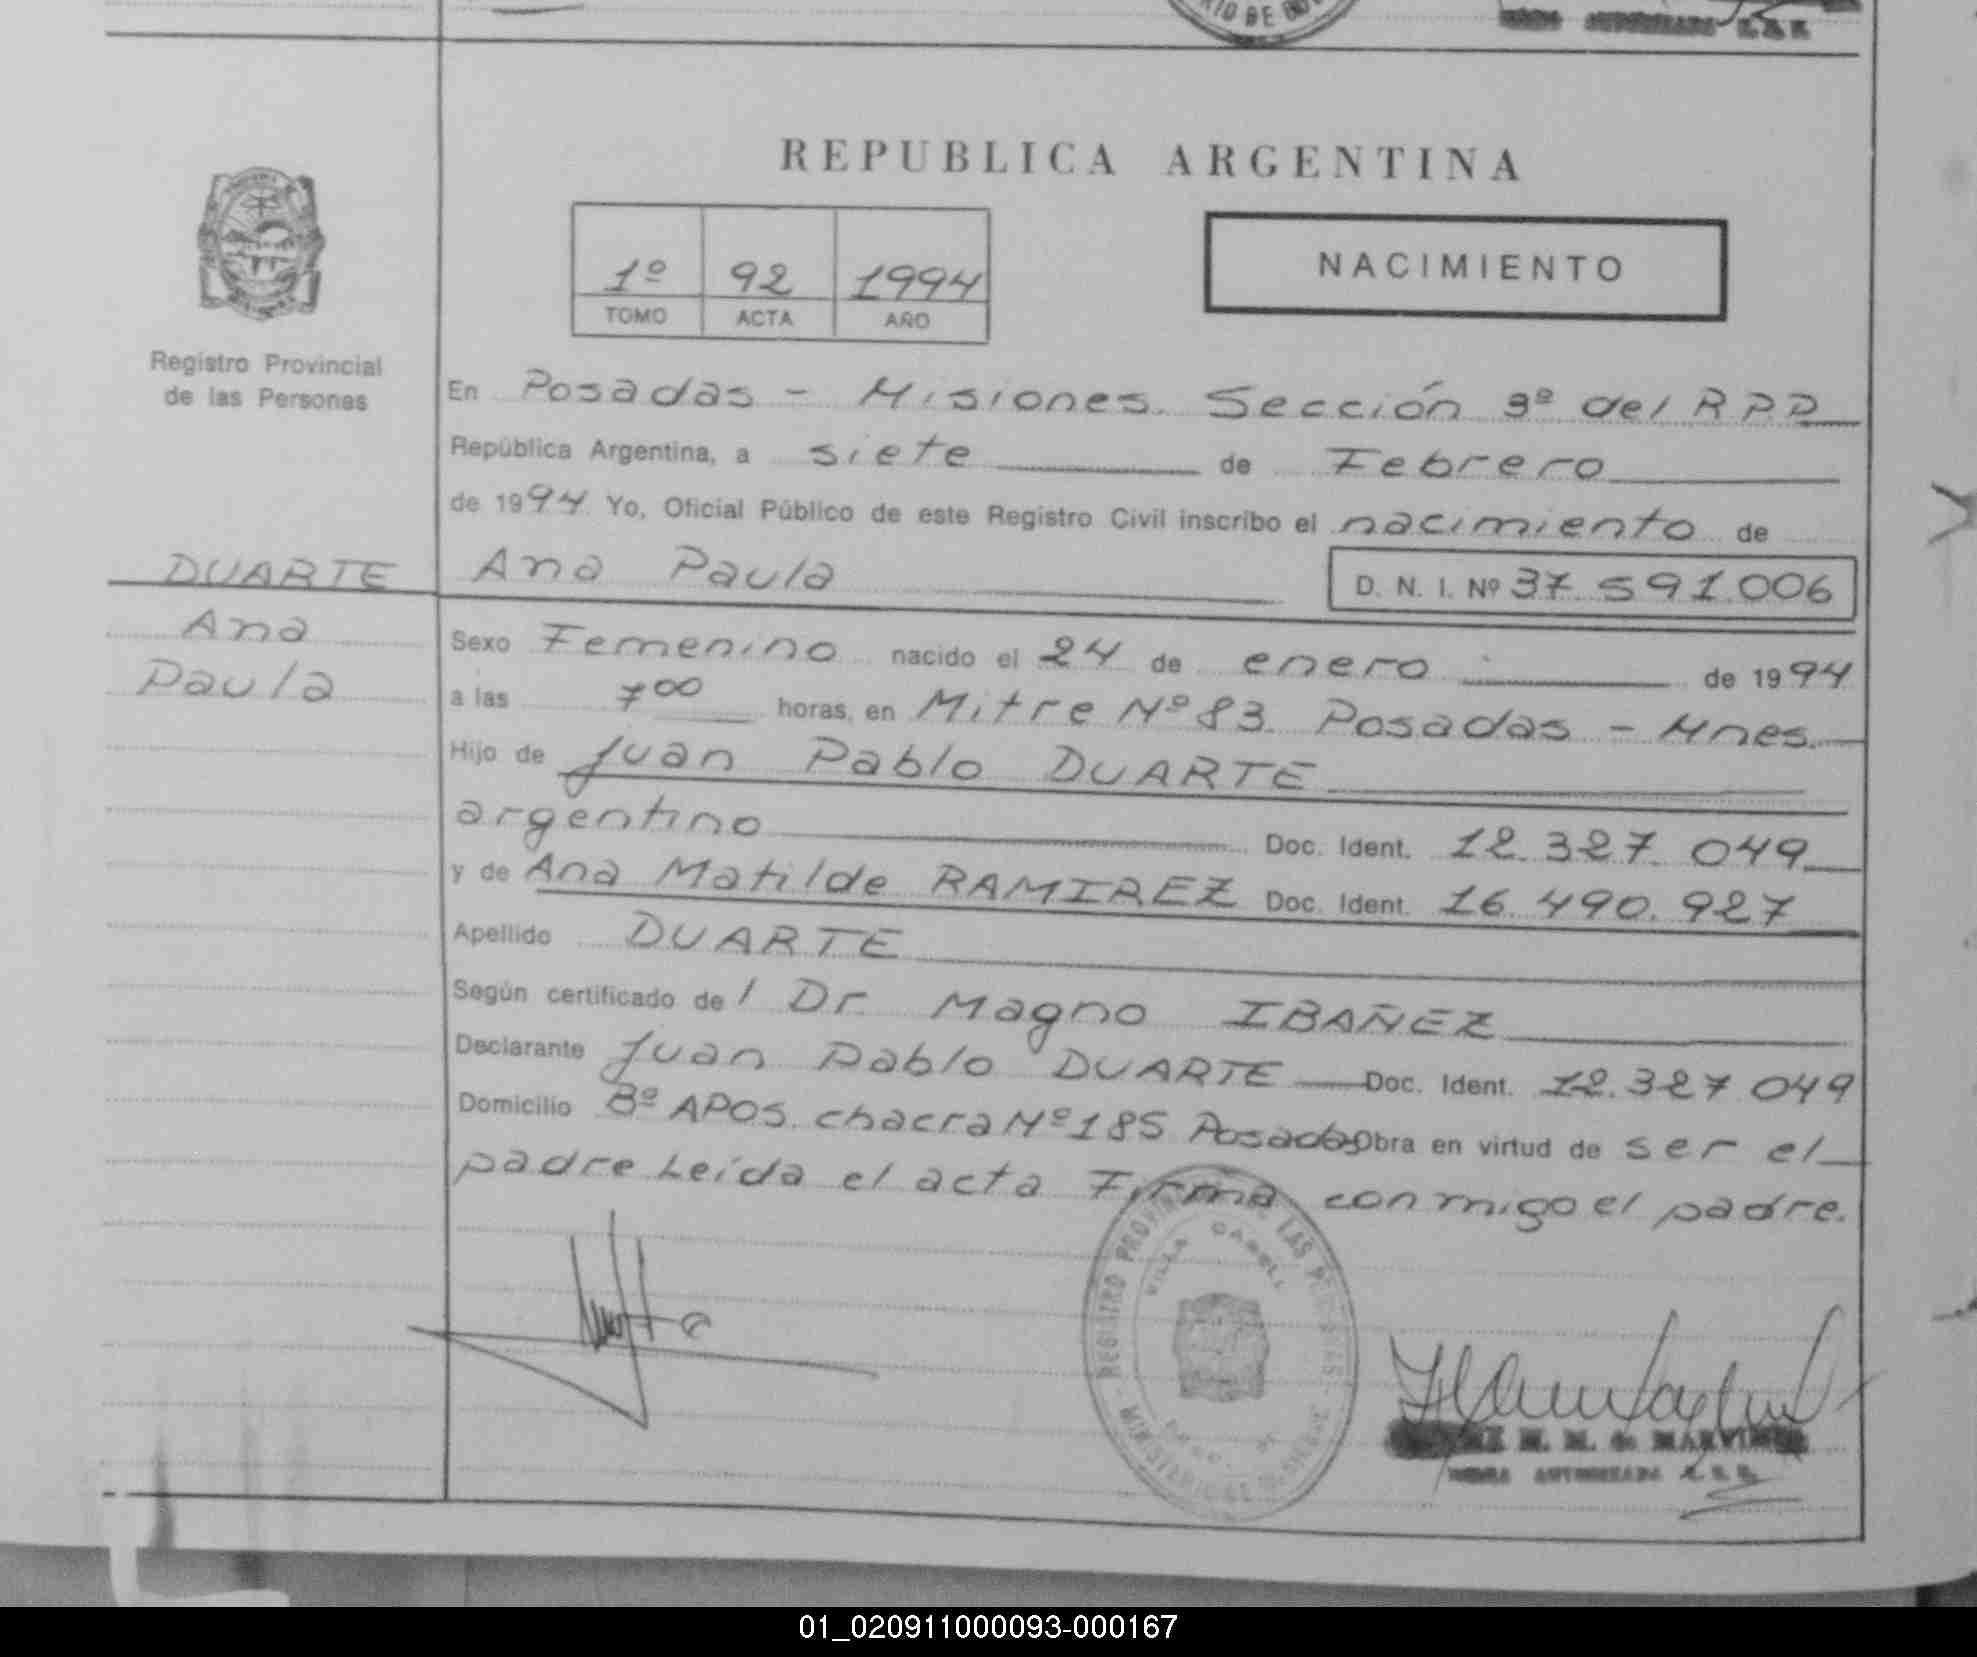 REPUBLICA ARGENTINA
1º 92 1994
TOMO ACTA AÑO
NACIMIENTO
Registro Provincial
de las Personas
DUARTE
Ana
Paula
En Posadas - Misiones. Sección 9º del RPP
República Argentina, a siete de Febrero
de 1994 Yo, Oficial Público de este Registro Civil inscribo el nacimiento de
Ana Paula D. N. I. Nº 37.591.006
Sexo Femenino nacido el 24 de enero de 1994
a las 7⁰⁰ horas, en Mitre Nº 83. Posadas - Mnes.
Hijo de Juan Pablo DUARTE
argentino Doc. Ident. 12.327.049
y de Ana Matilde RAMIREZ Doc. Ident. 16.490.927
Apellido DUARTE
Según certificado de l Dr. Magno IBAÑEZ
Declarante Juan Pablo DUARTE Doc. Ident. 12.327 049
Domicilio Bº APOS. chacra Nº 185 Posadas Obra en virtud de ser el
padre Leída el acta Firma conmigo el padre.
REGISTRO PROVINCIAL DE LAS PERSONAS
VILLA CABELL
MINISTERIO DE GOBIERNO
M. M. de MARTINEZ
FIRMA AUTORIZADA
01_020911000093-000167